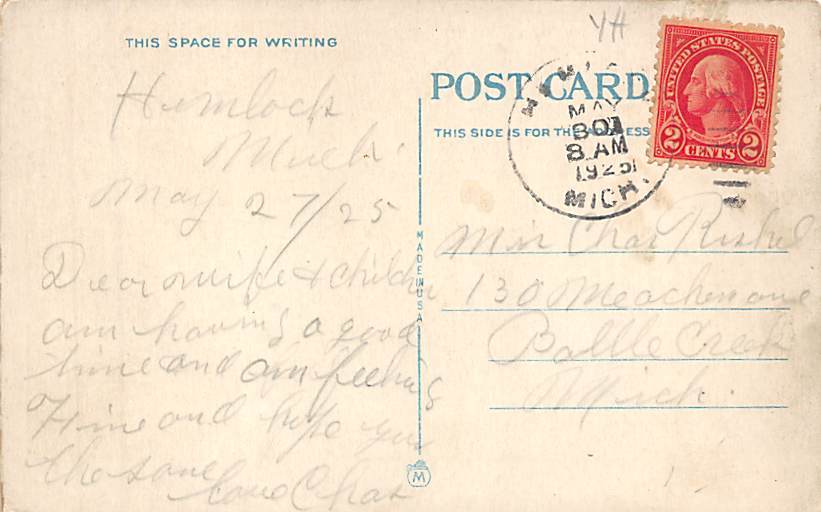 THIS SPACE FOR WRITING
Hemlock
Mich
May 27/25
Dear wife & children
am having a good
time and am feeling
Fine and hope you
the same
Love Chas
MADE IN USA
M
YH
POST CARD
THIS SIDE IS FOR THE ADDRESS
MAY
30
8 AM
1925
MICH.
UNITED STATES POSTAGE
2 CENTS 2
Mrs Chas
130 Meachem ave
Battle Creek
Mich.